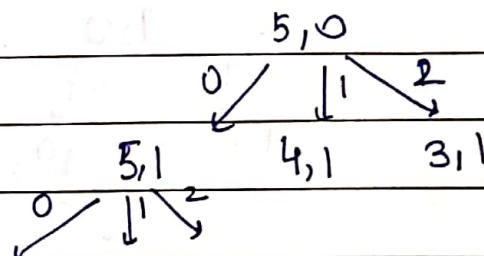 5,0
0 1 2
5,1 4,1 3,1
0 1 2